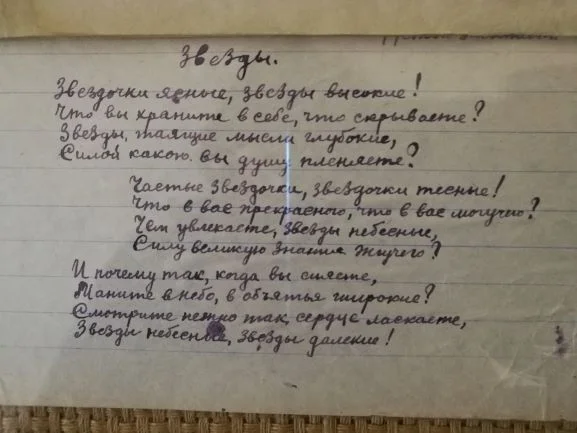 Звезды.
Звездочки ясные, звезды высокие!
Что вы храните в себе, что скрываете?
Звезды, таящие мысли глубокие,
Силой какою вы душу пленяете?
Частые звездочки, звездочки тесные!
Что в вас прекрасного, что в вас могучего?
Чем увлекаете, звезды небесные,
Силу великую знания жгучего?
И почему так, когда вы сияете,
Маните в небо, в объятья широкие?
Смотрите нежно так, сердце ласкаете,
Звезды небесные, звезды далекие!